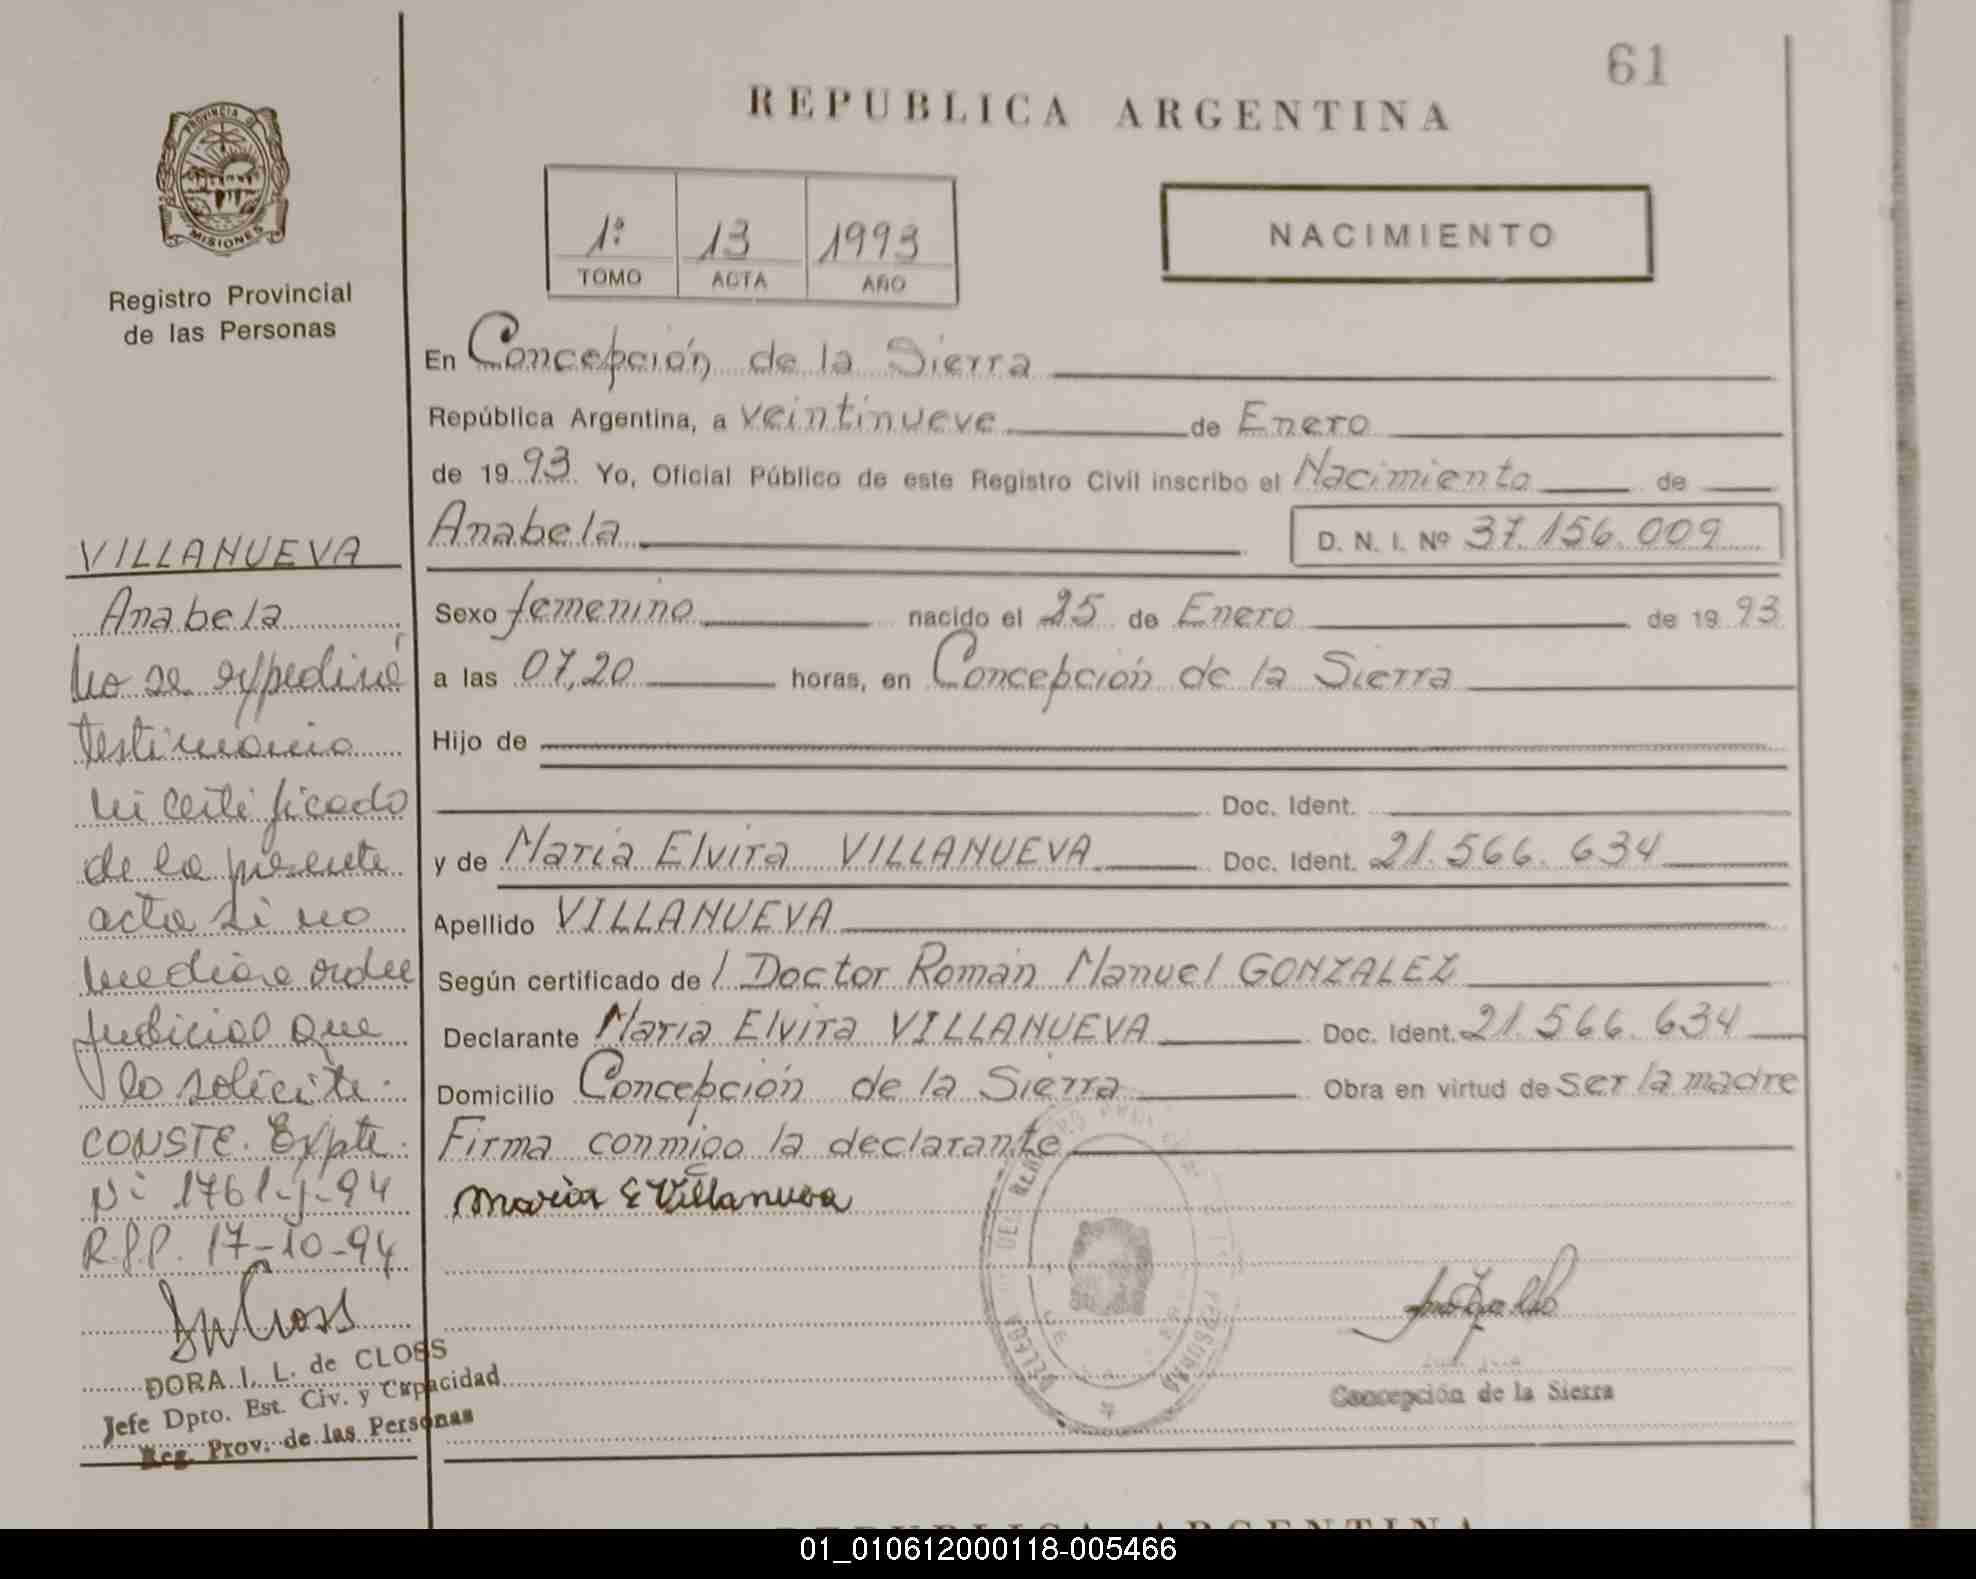 61
REPUBLICA ARGENTINA
PROVINCIA DE
MISIONES
Registro Provincial
de las Personas
1º 13 1993
TOMO ACTA AÑO
NACIMIENTO
En Concepción de la Sierra
República Argentina, a veintinueve de Enero
de 1993. Yo, Oficial Público de este Registro Civil inscribo el Nacimiento de
Anabela D. N. I. Nº 37.156.009
Sexo femenino nacido el 25 de Enero de 1993
a las 07,20 horas, en Concepción de la Sierra
Hijo de
Doc. Ident.
y de Maria Elvira VILLANUEVA Doc. Ident. 21.566.634
Apellido VILLANUEVA
Según certificado de l Doctor Román Manuel GONZALEZ
Declarante Maria Elvira VILLANUEVA Doc. Ident. 21.566.634
Domicilio Concepción de la Sierra Obra en virtud de ser la madre
Firma conmigo la declarante
Maria E Villanueva
Concepción de la Sierra
VILLANUEVA
Anabela
No se expedirá
testimonio
ni certificado
de la presente
acta si no
media orden
judicial que
lo solicite.
CONSTE. Expte.
Nº 1761-J-94
R.P.P. 17-10-94
DORA I. L. de CLOSS
Jefe Dpto. Est. Civ. y Capacidad
Reg. Prov. de las Personas
REPUBLICA ARGENTINA
01_010612000118-005466